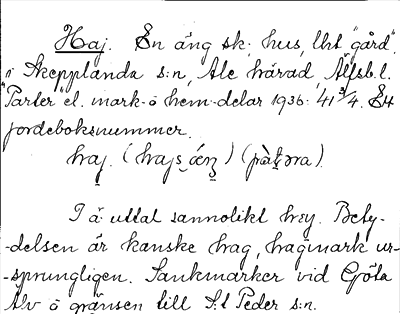 Haj. En äng sk. hus, lht "gård".
i Skepplanda s:n, Ale härad, Älfsb. l.
"Parter el. mark- o hem-delar 1936: 41 3/4. Ett
jordeboksnummer.
haj. (hajs) (pàtəra).
I ä. uttal sannolikt hœy. Bety-
-delsen är kanske hag, hagmark ur-
-sprungligen. Sankmarker vid Göta
Älv o gränsen till S:t Peder s:n.